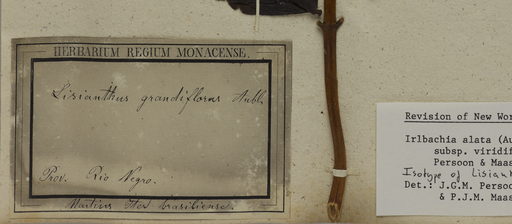 HERBARIUM REGIUM MONACENSE.
Lisianthus grandiflorus Aubl.
Prov. Rio Negro.
Martius Iter brasiliense.
Revision of New Wor
Irlbachia alata (Au
subsp. viridif
Persoon & Maas
Isotype of Lisiant
Det.: J.G.M. Persoo
& P.J.M. Maas